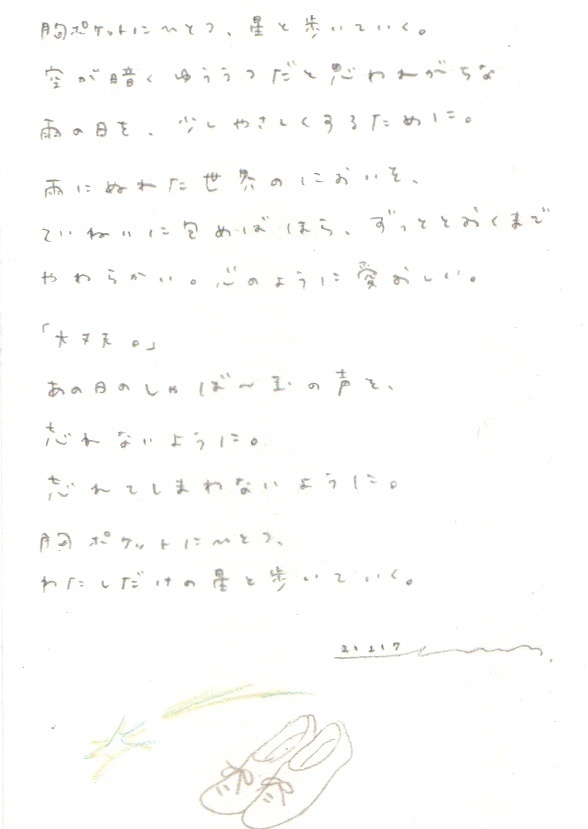 胸ポケットにひとつ、星と歩いていく。
空が暗くゆううつだと思われがちな
雨の日を、少しやさしくするために。
雨にぬれた世界のにおいを、
ていねいに包めばほら、ずっととおくまで
やわらかい。心のように愛おしい。
「大丈夫。」
あの日のしゃぼ〜玉の声を、
忘れないように。
忘れてしまわないように。
胸ポケットにひとつ、
わたしだけの星と歩いていく。
21 217